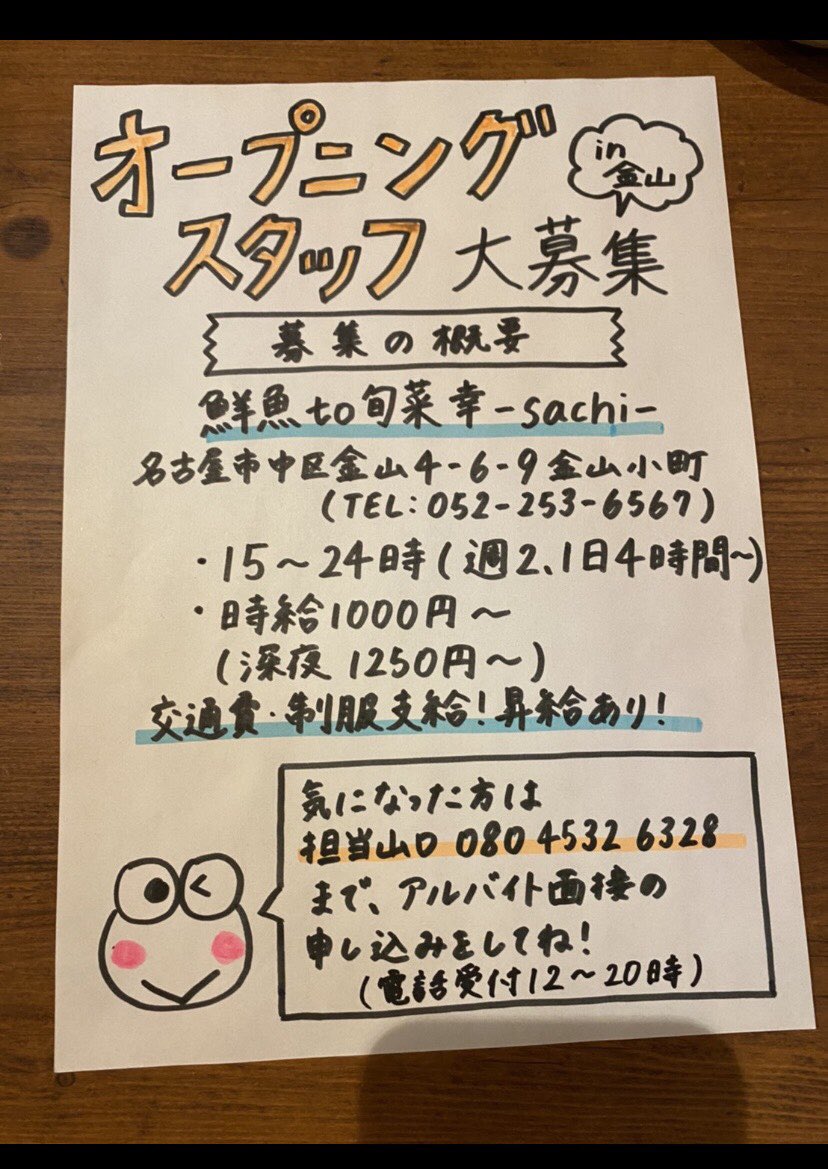 オープニング
in
金山
スタッフ 大募集
募集の概要
鮮魚to旬菜 幸-sachi-
名古屋市中区金山4-6-9 金山小町
(TEL:052-253-6567)
・15～24時(週2、1日4時間～)
・時給1000円～
(深夜 1250円～)
交通費・制服支給!昇給あり!
気になった方は
担当山口 080 4532 6328
まで、アルバイト面接の
申し込みをしてね!
(電話受付12～20時)